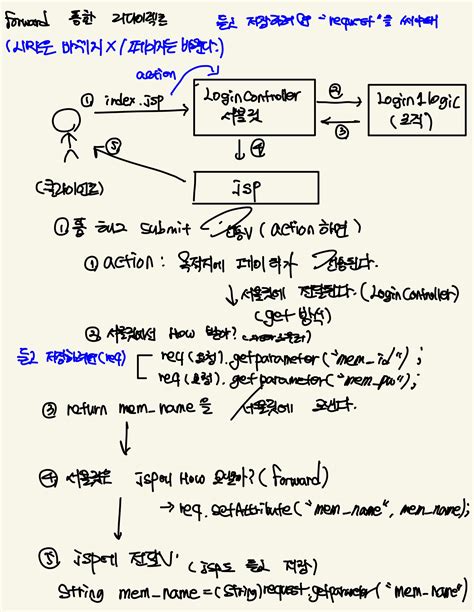 forward 통한 리다이렉트
들고 저장하려면 "request"를 써야돼
(시작은 바뀌지 X / 페이지는 바뀐다.)
action
① index.jsp
LoginController
서블릿
②
③
Login1logic
(로직)
④
⑤
jsp
(클라이언트)
① 폼 태그 submit 전송V (action 하면)
① action : 목적지에 데이터가 전송된다.
↓ 서블릿에 전달된다. (LoginController)
(get 방식)
② 서블릿에서 How 받아?
들고 저장하려면(req)
req(요청).getparameter("mem_id");
req(요청).getparameter("mem_pw");
③ return mem_name을 서블릿에 보낸다.
④ 서블릿은 jsp에 How 보내? (forward)
→ req.setAttribute("mem_name", mem_name);
⑤ jsp에 전달V (jsp도 들고 저장)
String mem_name=(String)request.getparameter("mem_name")